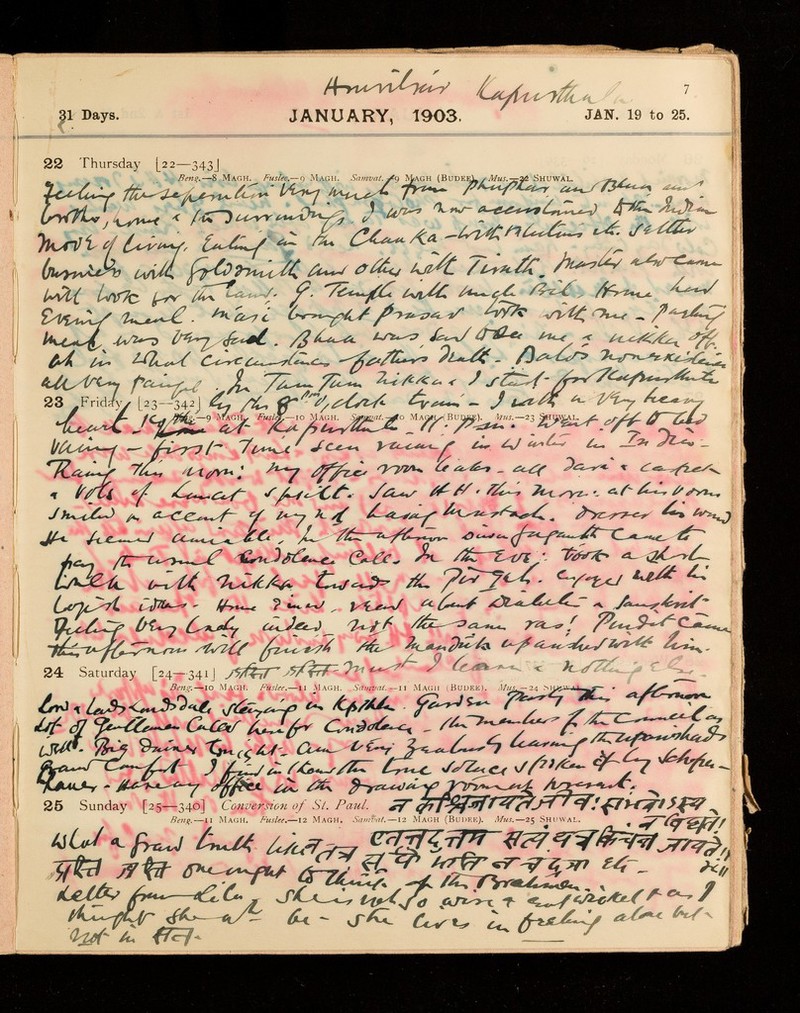 Kapurthala
7
31 Days. JANUARY, 1903. JAN. 19 to 25.
22 Thursday [22—343]
Beng.—8 MAGH. Fuslee.—9 MAGH. Samvat.—9 MAGH (BUDEE). Mus.—22 SHUWAL.
Feeling the seperation very much from phuphar and Bhua and
brothers, home & its surroundings. I was now accustomed to the Indian
mode of living. Eating in the Chauka – with etc. settled
business with Goldsmith and other with Tirath. Master also came
will look for the land. G. Temple with much Home had
Evening meal. Masi brought Prasad took with me – Parting
meal was very sad. Bhua was sad to see me & nikka off.
ah in what circumstances fathers death.
all very painful. In Tum Tum Nikka & I start for Kapurthala
23 Friday [23—342] by the 8 o'clock train – I with a very heavy
Beng.—9 MAGH. Fuslee.—10 MAGH. Samvat.—10 MAGH (BUDEE). Mus.—23 SHUWAL.
heart. at Kapurthala 11 P.m. went off to bed
raining – first time seen raining in winter in India –
Raining this morn: my office room leaks – all dari & carpet
& vols of spoilt. Saw H H. this morn: at his
smiled on account of my not having mustach. dressed his wound
He seemed amiable. In the afternoon came to
pay the usual condolence call. In the Eve: took a short
walk with nikka towards the
ideas. Home dined, read about Diabetes & Sanskrit
Feeling very lonely indeed, not the same ras! Pundit came
this afternoon will finish the Manduka upanshad with him.
24 Saturday [24—341] must I learn & nothing else.
Beng.—10 MAGH. Fuslee.—11 MAGH. Samvat.—11 MAGH (BUDEE). Mus.—24 SHUWAL.
Lord & Lady Londsdale staying in Kpthla. Garden party this afternoon
Lot of Gentlemen called here for Condolence – the members of the Council as
well. Big dinner tonight – am very zealously learning the upanshads
Grand Comfort I find in them the true solace spoken of by Schopen-
hauer – have my office in the drawing room at present.
25 Sunday [25—340] Conversion of St. Paul.
Beng.—11 MAGH. Fuslee.—12 MAGH. Samvat.—12 MAGH (BUDEE). Mus.—25 SHUWAL.
न कश्चिज्जायते जीवः संभवोऽस्य
न विद्यते!
What a grand truth एतत्तदुत्तमं सत्यं यत्र किंचिन्न जायते!!
one ought to think of the Brahman.
Letter from she is not so wise & as I
thought she wd be – she lives in feeling alone but
not in